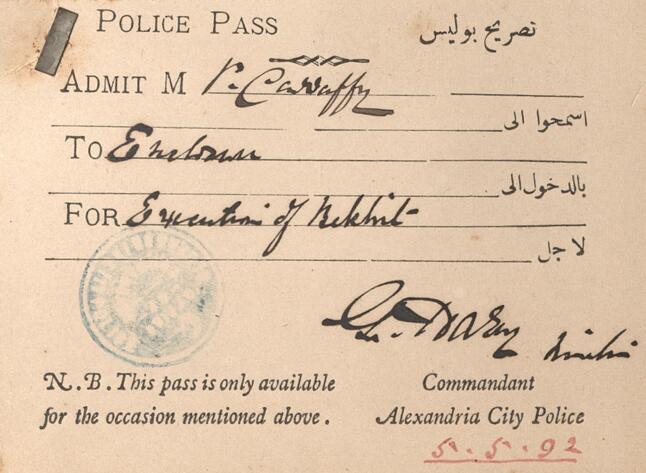 POLICE PASS تصريح بوليس
ADMIT M P. Cavaffy
اسمحوا الى
TO Enclosure
بالدخول الى
FOR Execution of Bekhit
لاجل
N.B. This pass is only available
for the occasion mentioned above.
Commandant
Alexandria City Police
5.5.92